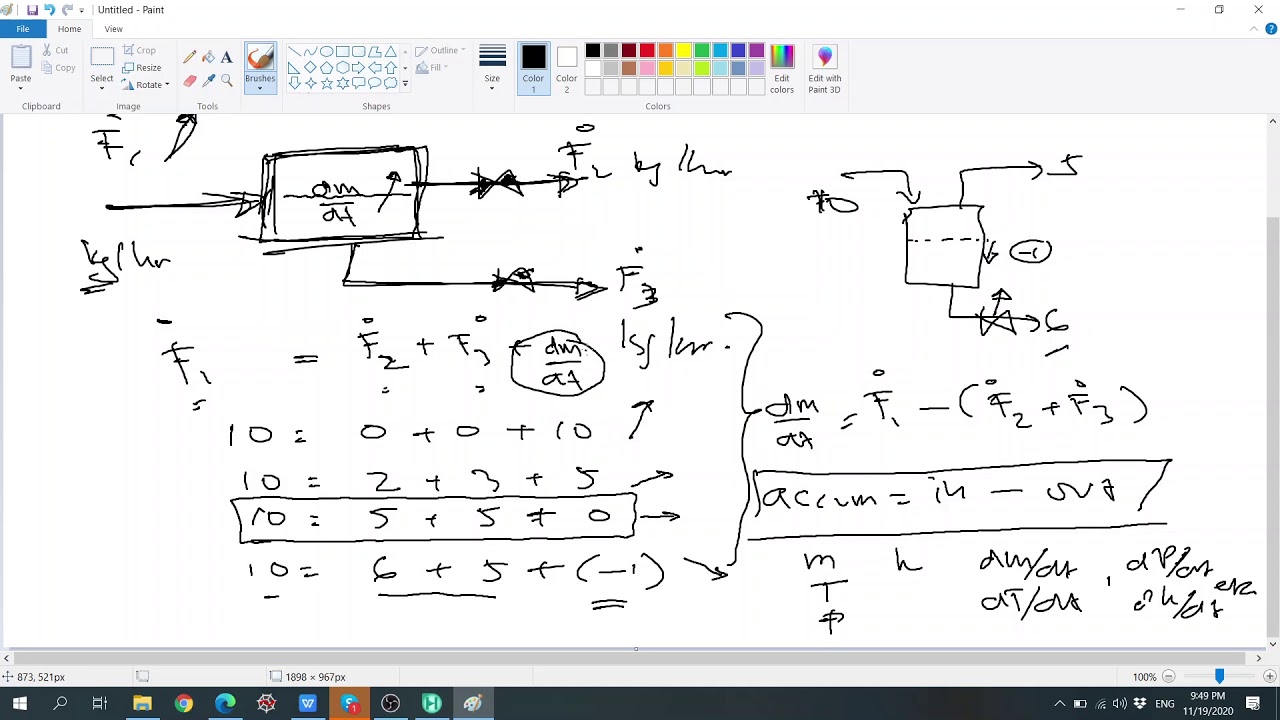 Untitled - Paint
File Home View
Paste
Cut
Copy
Clipboard
Select
Crop
Resize
Rotate
Image
Tools
Brushes
Shapes
Outline
Fill
Size
Color 1
Color 2
Edit colors
Edit with Paint 3D
Colors
Ḟ1
kg/hr
dm/dt
Ḟ2 kg/hr
Ḟ3
10
5
-1
6
Ḟ1 = Ḟ2 + Ḟ3 + dm/dt kg/hr.
10 = 0 + 0 + 10
10 = 2 + 3 + 5
10 = 5 + 5 + 0
10 = 6 + 5 + (-1)
dm/dt = Ḟ1 - (Ḟ2 + Ḟ3)
accum = in - out
m h dm/dt , dP/dt
T dT/dt dh/dt etc
P
873, 521px
1898 × 967px
100%
ENG
9:49 PM
11/19/2020